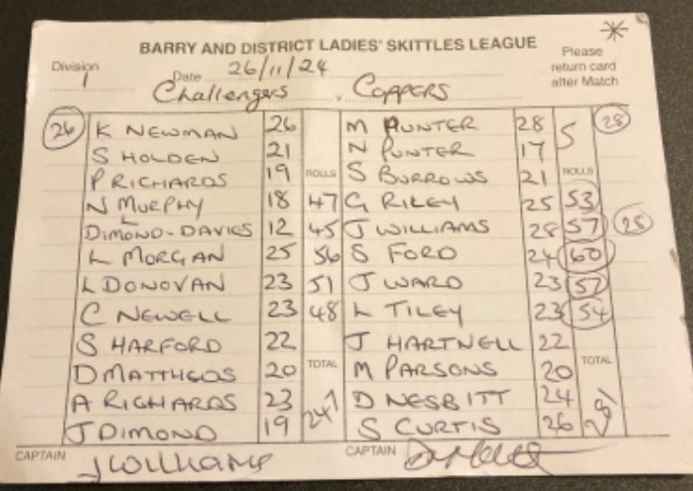 BARRY AND DISTRICT LADIES' SKITTLES LEAGUE
Division 1 Date 26/11/24 Please return card after Match
Challengers v. Coppers
26 K NEWMAN 26 M PUNTER 28 5 28
S HOLDEN 21 N PUNTER 17
P RICHARDS 19 ROLLS S BURROWS 21 ROLLS
N MURPHY 18 47 G RILEY 25 53
L DIMOND-DAVIES 12 45 J WILLIAMS 28 57
L MORGAN 25 56 S FORD 24 60
L DONOVAN 23 51 J WARD 23 57
C NEWELL 23 48 L TILEY 23 54
S HARFORD 22 J HARTNELL 22
D MATTHEWS 20 TOTAL M PARSONS 20 TOTAL
A RICHARDS 23 247 D NESBITT 24 281
J DIMOND 19 S CURTIS 26
CAPTAIN J Williams CAPTAIN